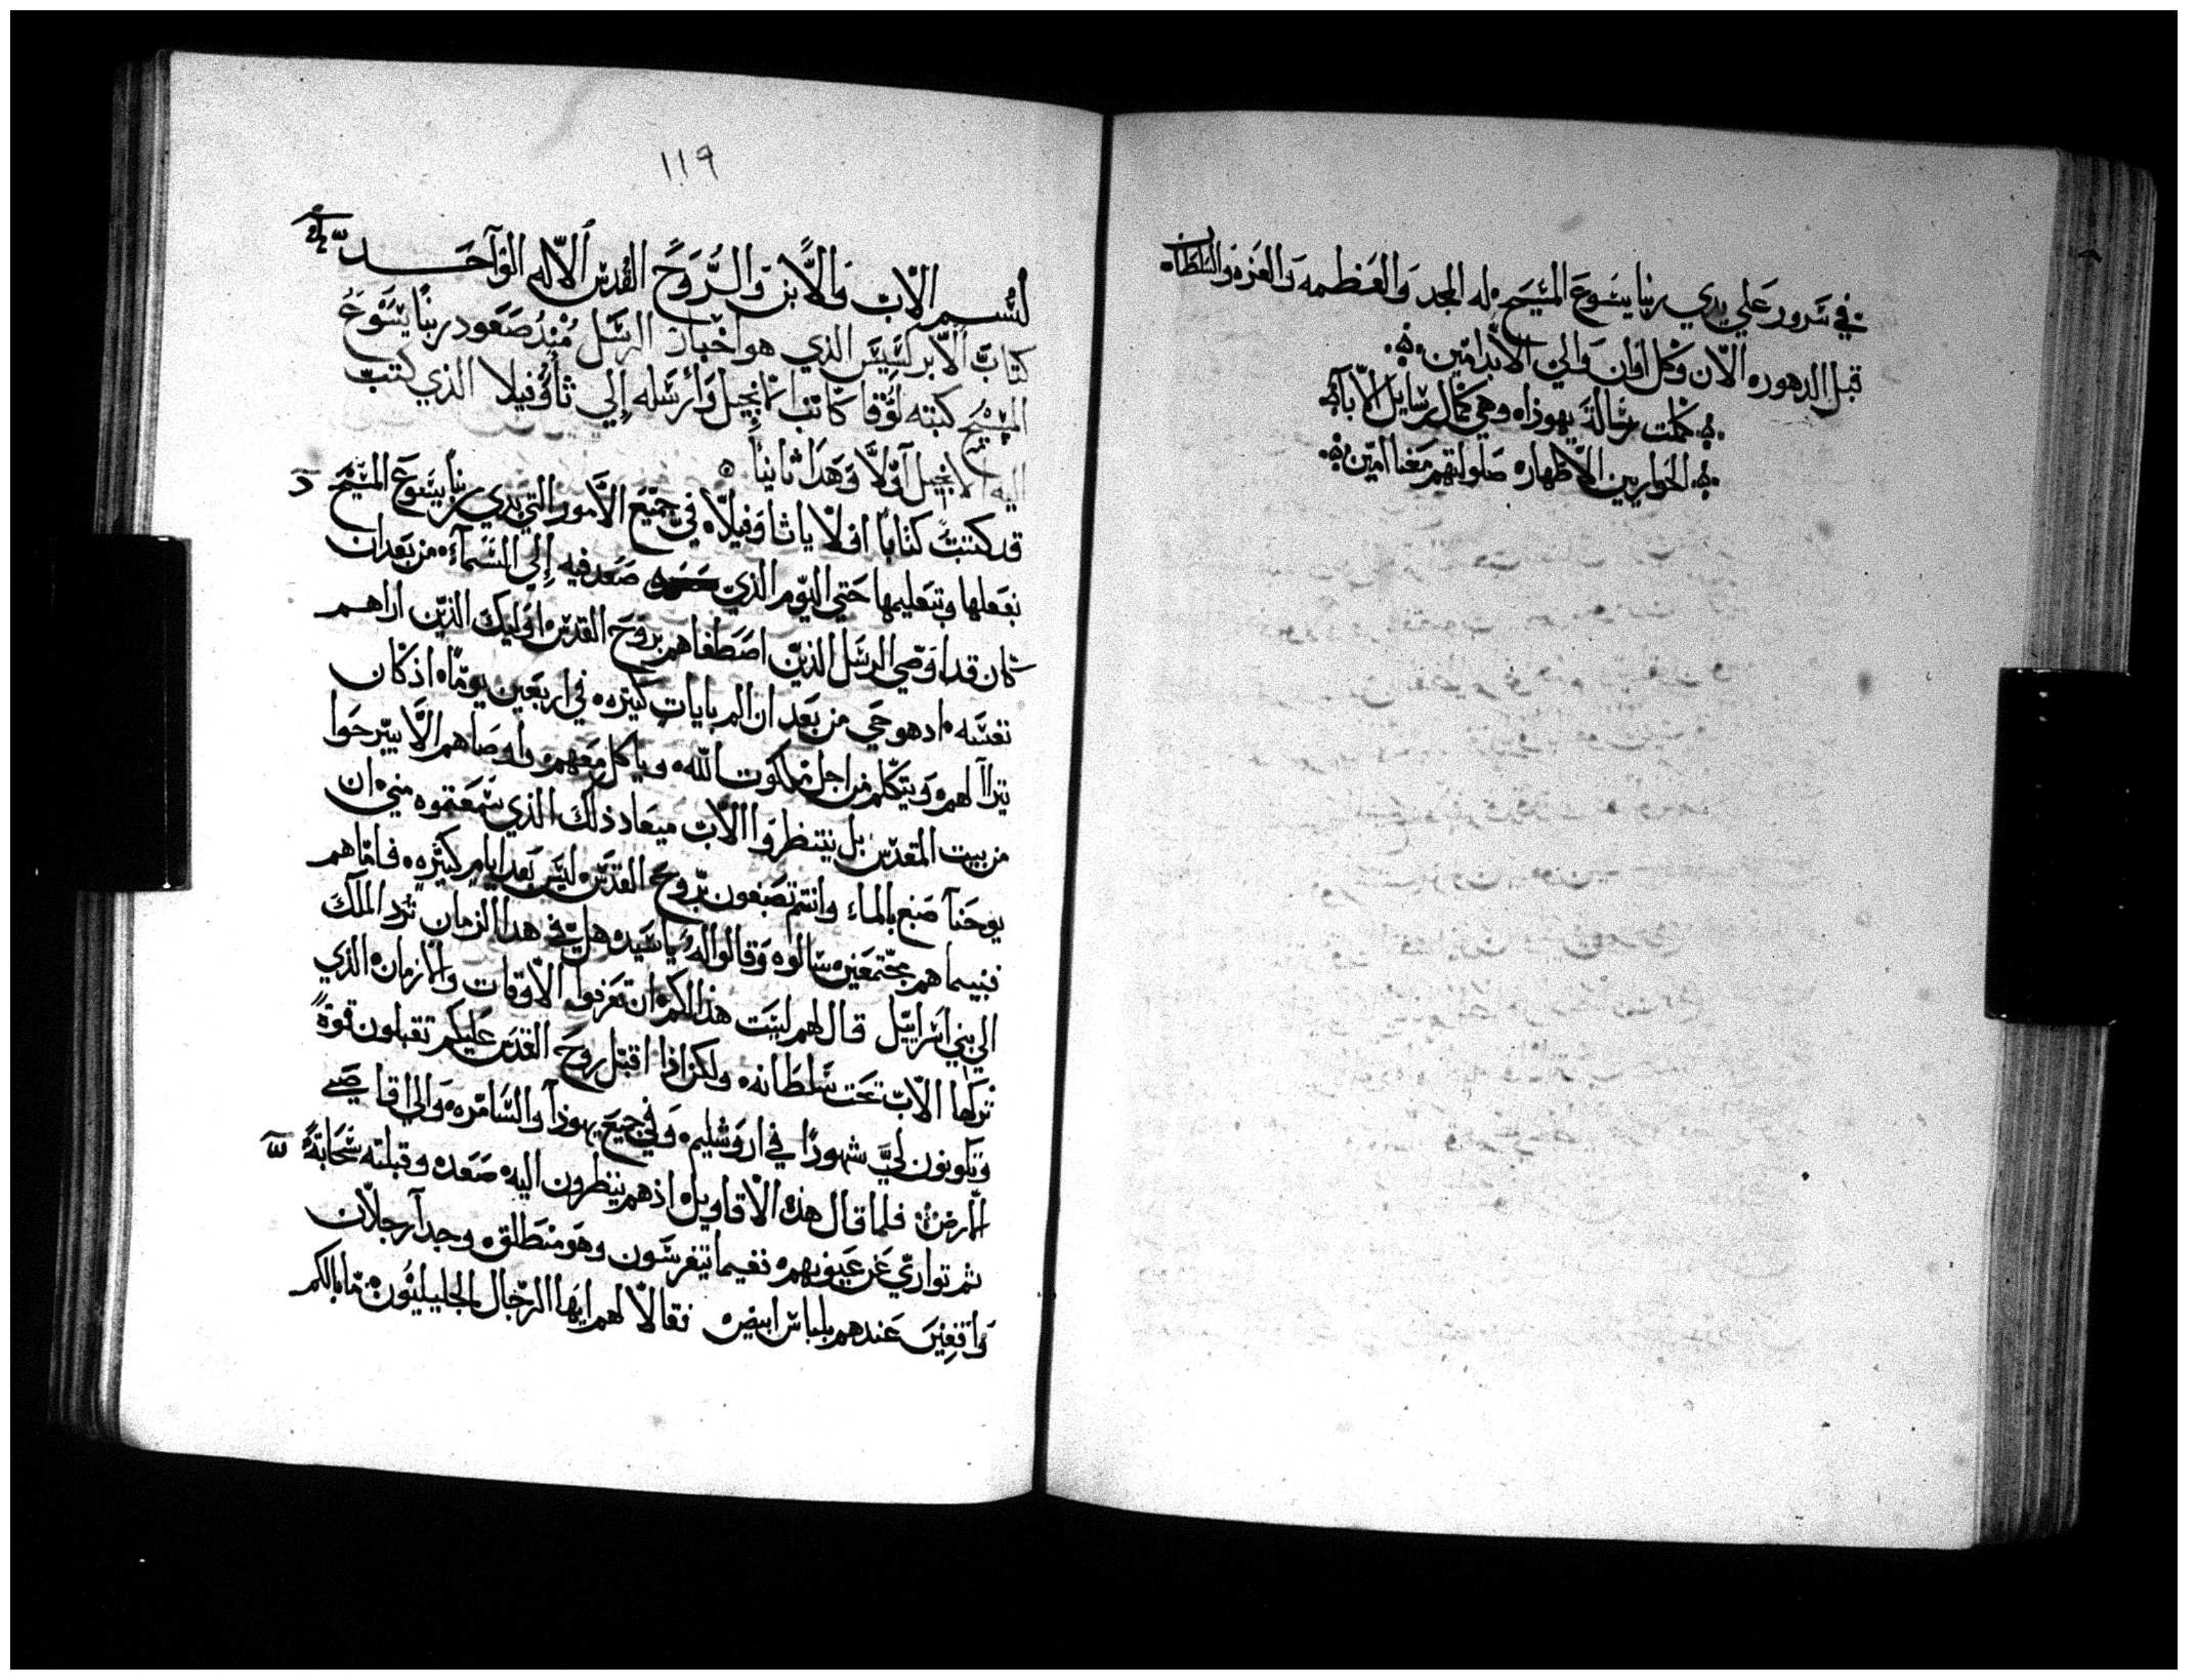 في سرور علي يدي ربنا يسوع المسيح له المجد والعظمه والعزه والسلطان
قبل الدهوره الان وكل اوان والي الابد امين
كملت رسالة يهوذاه وهي كمال رسايل الابآء
الحواريين الاطهاره صلواتهم معنا امين
١١٩
بسم الاب والابن والروح القدس الاله الوآحد
كتاب الابركسيس الذي هو اخبار الرسل منذ صعود ربنا يسوع
المسيح كتبه لوقا كاتب الانجيل وارسله الي ثاوفيلا الذي كتب
اليه الانجيل آولا وهذا ثانيا
قد كتبت كتابا اولا يا ثاوفيلا في جميع الامور التي بدي ربنا يسوع المسيح
بفعلها وتعليمها حتي اليوم الذي صعد فيه الي السمآء من بعد ان
كان قد اوصي الرسل الذين اصطفاهم بروح القدس اوليك الذين اراهم
نفسه اد هو حي من بعد ان الم بايات كتيره في اربعين يوما اذ كان
يترآا لهم ويتكلم من اجل ملكوت الله وياكل معهم واوصاهم الا يبرحوا
من بيت المقدس بل ينتظروا الاب ميعاد ذلك الذي سمعتموه مني ان
يوحنا صبغ بالماء وانتم تصبغون بروح القدس ليس بعد ايام كثيره فاما هم
فبينما هم مجتمعين سالوه وقالوا له يا سيد هل في هدا الزمان ترد الملك
الي بني اسراييل قال لهم ليست هذا لكم ان تعرفوا الاوقات والازمان الذي
تركها الاب تحت سلطانه ولكن اذا اقبل روح القدس عليكم تقبلون قوة
وتكونون لي شهودا في اروشليم وفي جميع يهوذا والسامره والي اقاصي
الارض فلما قال هذه الاقاويل اذ هم ينظرون اليه صعد وقبلته سحابة
ثم تواري عن عيونهم فقيما يتفرسون وهو منطلق وجدآ رجلان
واقفين عندهم بلباس ابيض فقالا لهم ايها الرجال الجليليون ما بالكم